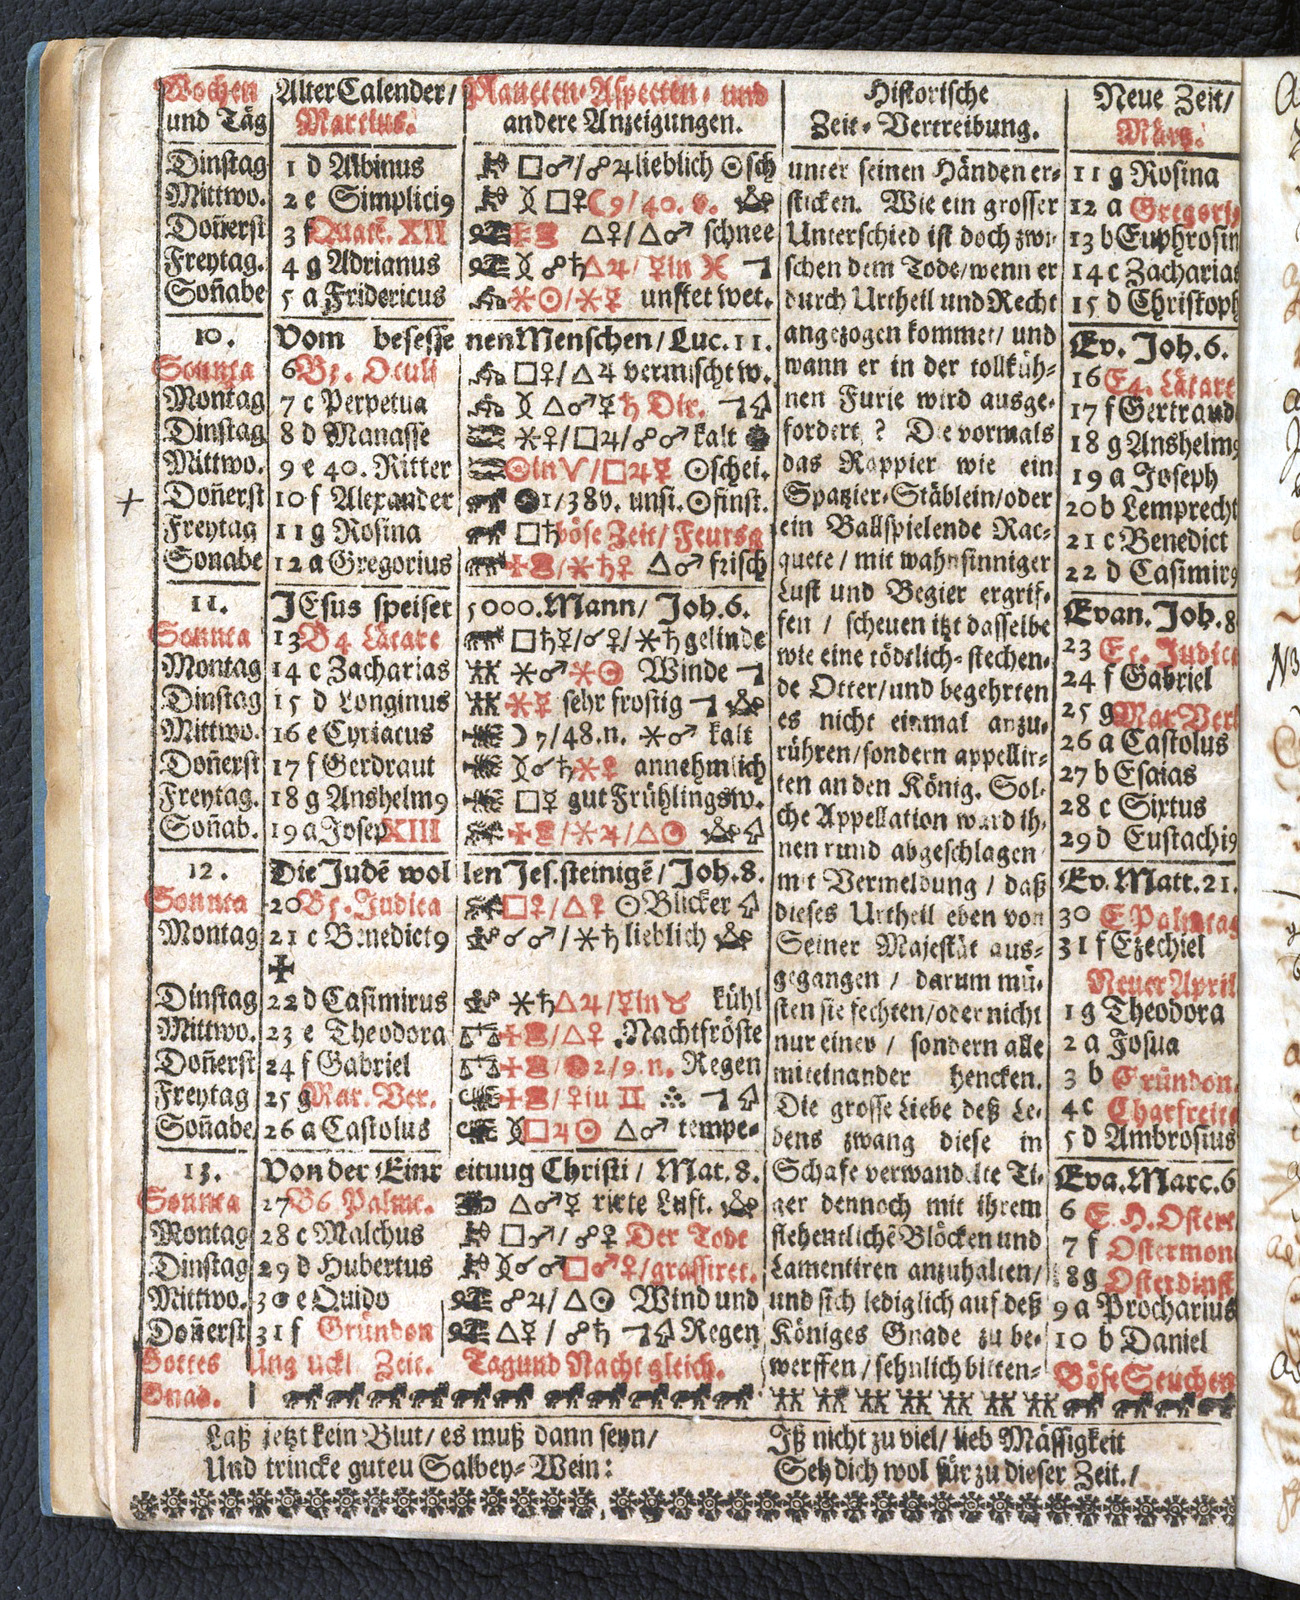 Wochen und Täg
Alter Calender/ Martius.
Planeten-Aspecten- und andere Anzeigungen.
Historische Zeit-Vertreibung.
Neue Zeit/ Märtz.
Dinstag 1 d Albinus □♂/☍♃ lieblich ☉sch
Mittwo. 2 e Simplici9 □♀☾9/40. v.
Doñerst 3 f Quat. XII △♀/△♂ schnee
Freytag. 4 g Adrianus ☍♄△♃/☿in ♓
Soñabe 5 a Fridericus ⚹☉/⚹☿ unstet wet.
10. Vom besesse nen Menschen/ Luc. 11.
Sonnta 6 B3. Oculi □♀/△♃ vermischt w.
Montag 7 c Perpetua △♂☿♄ Dir.
Dinstag 8 d Manasse ⚹♀/□♃/☍♂ kalt
Mittwo. 9 e 40. Ritter ☉in♈/□♃☿ ☉schei.
Doñerst 10 f Alexander 1/38v. unsi. ☉finst.
Freytag 11 g Rosina □♄ böse Zeit/ Feursg
Sonabe 12 a Gregorius ⚹♄♀ △♂ frisch
11. JEsus speiset 5000. Mann/ Joh. 6.
Sonnta 13 B4 Lätare □♄☿/☌♀/⚹♄ gelinde
Montag 14 c Zacharias ⚹♂⚹☉ Winde
Dinstag 15 d Longinus ⚹☿ sehr frostig
Mittwo. 16 e Cyriacus ☽7/48.n. ⚹♂ kalt
Doñerst 17 f Gerdraut ☌♄⚹☿ annehmlich
Freytag. 18 g Anshelm9 □☿ gut Frühlingsw.
Soñab. 19 a Josep XIII ⚹♃/△☉
12. Die Judẽ wol len Jes. steinigẽ/ Joh. 8.
Sonnta 20 B5. Judica □♀/△☿ ☉Blicker
Montag 21 c Benedict9 ☌♂/⚹♄ lieblich
✠
Dinstag 22 d Casimirus ⚹♄△♃/☿in♉ kühl
Mittwo. 23 e Theodora /△♀ Nachtfröste
Doñerst 24 f Gabriel 2/9.n. Regen
Freytag 25 g Mar. Ver. /♀in ♊
Soñabe 26 a Castolus □♃☉ △♂ tempe-
13. Von der Einr eitung Christi/ Mat. 8.
Sonnta 27 B6 Palmt. △♂☿ Luft.
Montag 28 c Malchus □♂/☍♀ Der Tode
Dinstag 29 d Hubertus ☌♂□♂♀/grassiret.
Mittwo. 30 e Quido ☍♃/△☉ Wind und
Doñerst 31 f Gründon △☿/☍♄ Regen
Gottes Gnad. Ung ückl Zeit. Tag und Nacht gleich.
unter seinen Händen er-
sticken. Wie ein grosser
Unterschied ist doch zwi-
schen dem Tode/wenn er
durch Urtheil und Recht
angezogen kommet/ und
wann er in der tollküh-
nen Furie wird ausge-
fordert ? Die vormals
das Rappier wie ein
Spatzier-Stäblein/oder
ein Ballspielende Rac-
quete/ mit wahnsinniger
Lust und Begier ergrif-
fen / scheuen itzt dasselbe
wie eine tödtlich-stechen-
de Otter/und begehrten
es nicht einmal anzu-
rühren/sondern appellir-
ten an den König. Sol-
che Appellation ward ih-
nen rund abgeschlagen
mit Vermeldung / daß
dieses Urtheil eben von
Seiner Majestät aus-
gegangen / darum mü-
sten sie fechten/oder nicht
nur einer / sondern alle
miteinander hencken.
Die grosse Liebe deß Le-
bens zwang diese in
Schafe verwandelte Ti-
ger dennoch mit ihrem
flehentlichẽ Blöcken und
Lamentiren anzuhalten/
und sich lediglich auf deß
Königes Gnade zu be-
werffen/sehnlich bitten-
11 g Rosina
12 a Gregori
13 b Euphrosin
14 c Zacharias
15 d Christoph
Ev. Joh. 6.
16 E4. Lätare
17 f Gertraud
18 g Anshelm9
19 a Joseph
20 b Lemprecht
21 c Benedict
22 d Casimir9
Evan. Joh. 8
23 E5. Judica
24 f Gabriel
25 g Mar Ver
26 a Castolus
27 b Esaias
28 c Sixtus
29 d Eustachi9
Ev. Matt. 21.
30 E Palmtag
31 f Ezechiel
Neuer April
1 g Theodora
2 a Josua
3 b Gründon.
4 c Charfreit
5 d Ambrosius
Eva. Marc. 6
6 E H. Oster
7 f Ostermon
8 g Osterdinst
9 a Procharius
10 b Daniel
Böse Seuchen
Laß jetzt kein Blut/ es muß dann seyn/
Und trincke guten Salbey-Wein:
Iß nicht zu viel/ lieb Mässigkeit
Seh dich wol für zu dieser Zeit./